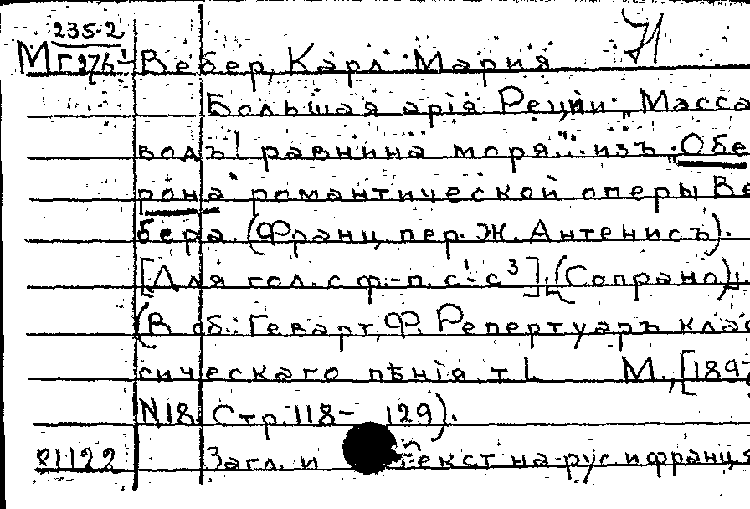 235-2
71
Мг 276¹ Вебер, Карл Мария
Большая арiя Реции „Масса
водъ! равнина моря“ изъ „Обе
рона“ романтической оперы Ве
бера. (Франц. пер. Ж. Антенисъ).
[Для гол. с ф.-п. c¹-c³]. (Сопрано).
(В сб.: Геварт, Ф. Репертуаръ клас
сическаго пѣнiя. т. I. М., [1897
N18. Стр. 118- 129).
81122 Загл. и текст на рус. и француз